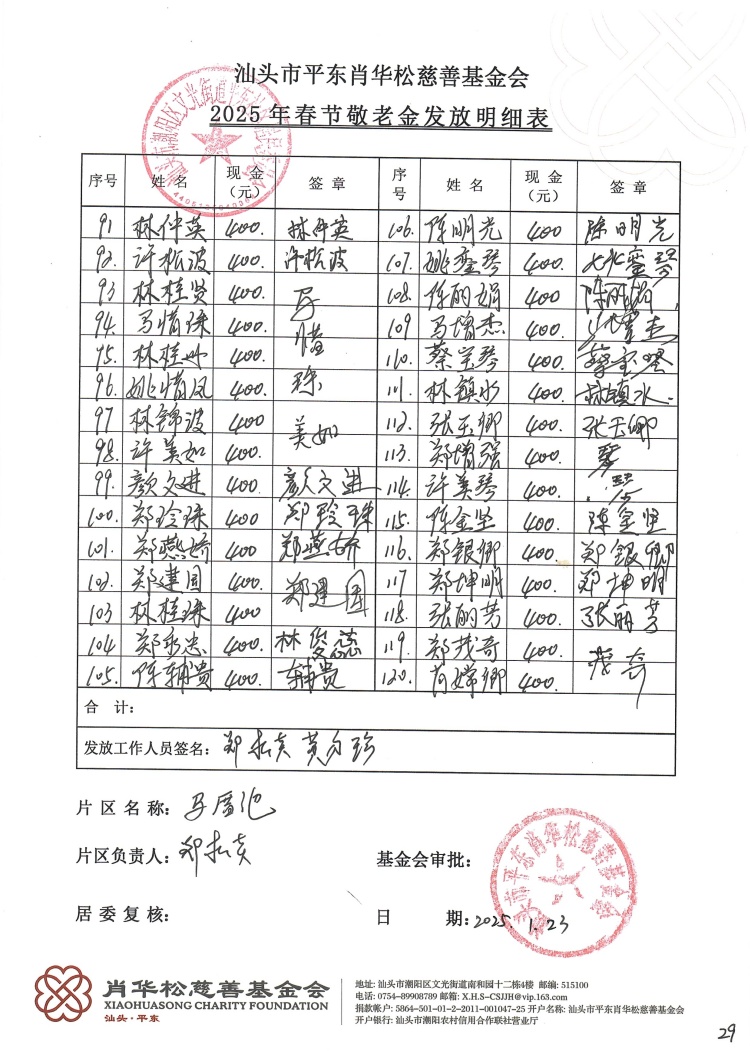 汕头市平东肖华松慈善基金会
2025年春节敬老金发放明细表
序号 姓名 现金(元) 签章 序号 姓名 现金(元) 签章
91 林仲英 400. 林仲英 106. 陈明光 400 陈明光
92. 许松波 400. 许松波 107. 姚銮琴 400. 姚銮琴
93 林桂贤 400. 108. 陈丽娟 400 陈丽娟
94. 马惜珠 400. 马惜珠 109 马增杰 400.
95. 林桂 400. 110. 蔡宝琴 400. 蔡宝琴
96. 姚惜凤 400. 111. 林镇水 400. 林镇水.
97 林锦波 400 112. 张玉卿 400. 张玉卿
98. 许美如 400. 美如 113. 郑增强 400.
99. 颜文进 400 颜文进 114. 许美琴 400. 琴
100. 郑玲珠 400 郑玲珠 115. 陈金坚 400. 陈金坚
101. 郑燕娇 400 郑燕娇 116. 郑银卿 400. 郑银卿
102. 郑建国 400. 郑建国 117 郑坤明 400. 郑坤明
103 林桂珠 400 118. 张丽芳 400. 张丽芳
104 郑 忠 400. 林俊蕊 119. 郑茂奇 400. 茂奇
105. 陈辅贵 400. 辅贵 120. 嫦卿 400.
合 计:
发放工作人员签名: 郑 黄 珍
片区名称: 马厝池
片区负责人: 郑
基金会审批:
居委复核:
日 期: 2025. 1. 23
肖华松慈善基金会
XIAOHUASONG CHARITY FOUNDATION
汕头·平东
地址: 汕头市潮阳区文光街道南和园十二栋4楼 邮编: 515100
电话: 0754-89908789 邮箱: X.H.S-CSJJH@vip.163.com
捐款帐户: 5864-501-01-2-2011-001047-25 开户名称: 汕头市平东肖华松慈善基金会
开户银行: 汕头市潮阳农村信用合作联社营业厅
29